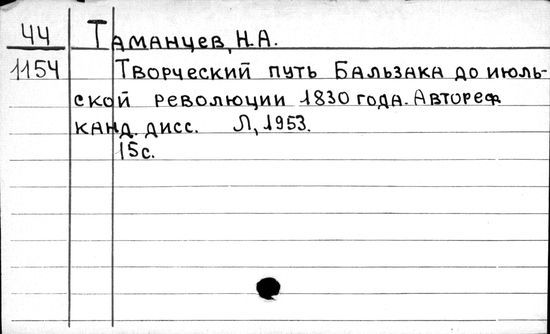 44 Таманцев, Н.А.
1154 Творческий путь Бальзака до июль-
ской революции 1830 года. Автореф.
канд. дисс. Л, 1953.
15с.